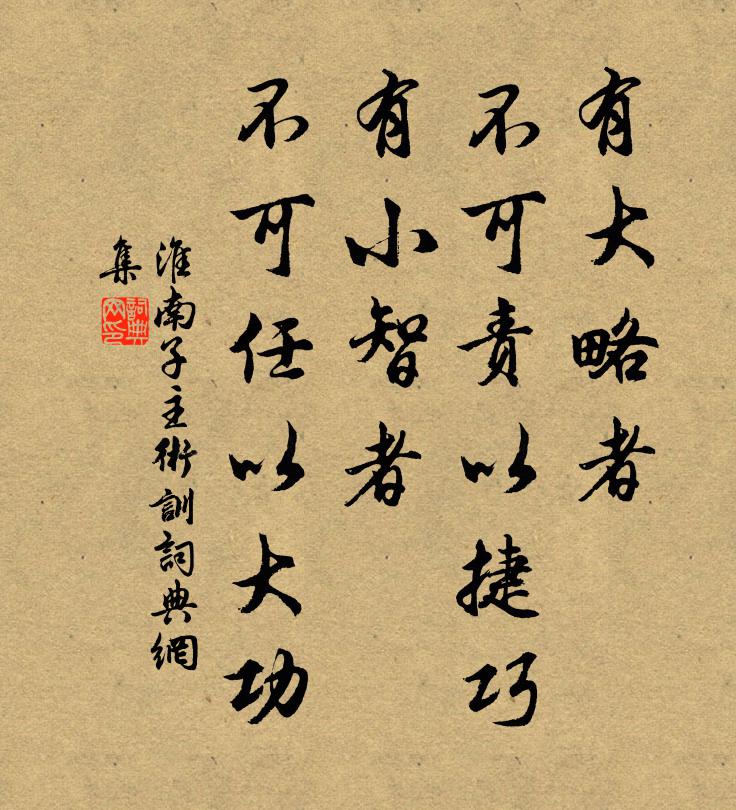 有大略者
不可责以捷巧
有小智者
不可任以大功
淮南子主術訓詞典網
集
詞典
网印